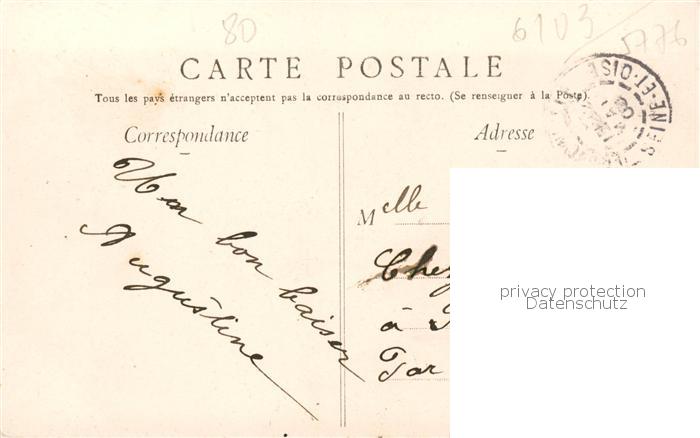 80
6103
5776
CARTE POSTALE
Tous les pays étrangers n'acceptent pas la correspondance au recto. (Se renseigner à la Poste).
SEINE-ET-OISE
08
Correspondance
Adresse
Un bon baiser
Augustine
Melle
Chez
à
Par
privacy protection
Datenschutz